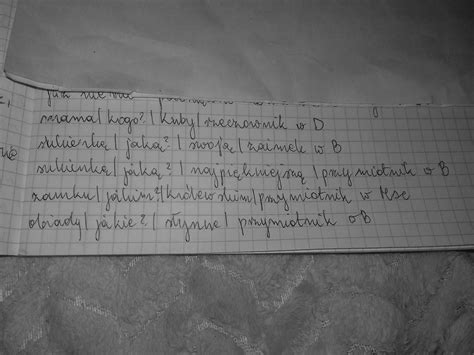 już nie nie
mama | kogo? | kuby | rzeczownik w D
sukienkę | jaką? | swoją | zaimek w B
sukienkę | jaką? | najpiękniejszą | przymiotnik w B
zamku | jakim? | królewskim | przymiotnik w Msc
obiady | jakie? | słynne | przymiotnik w B